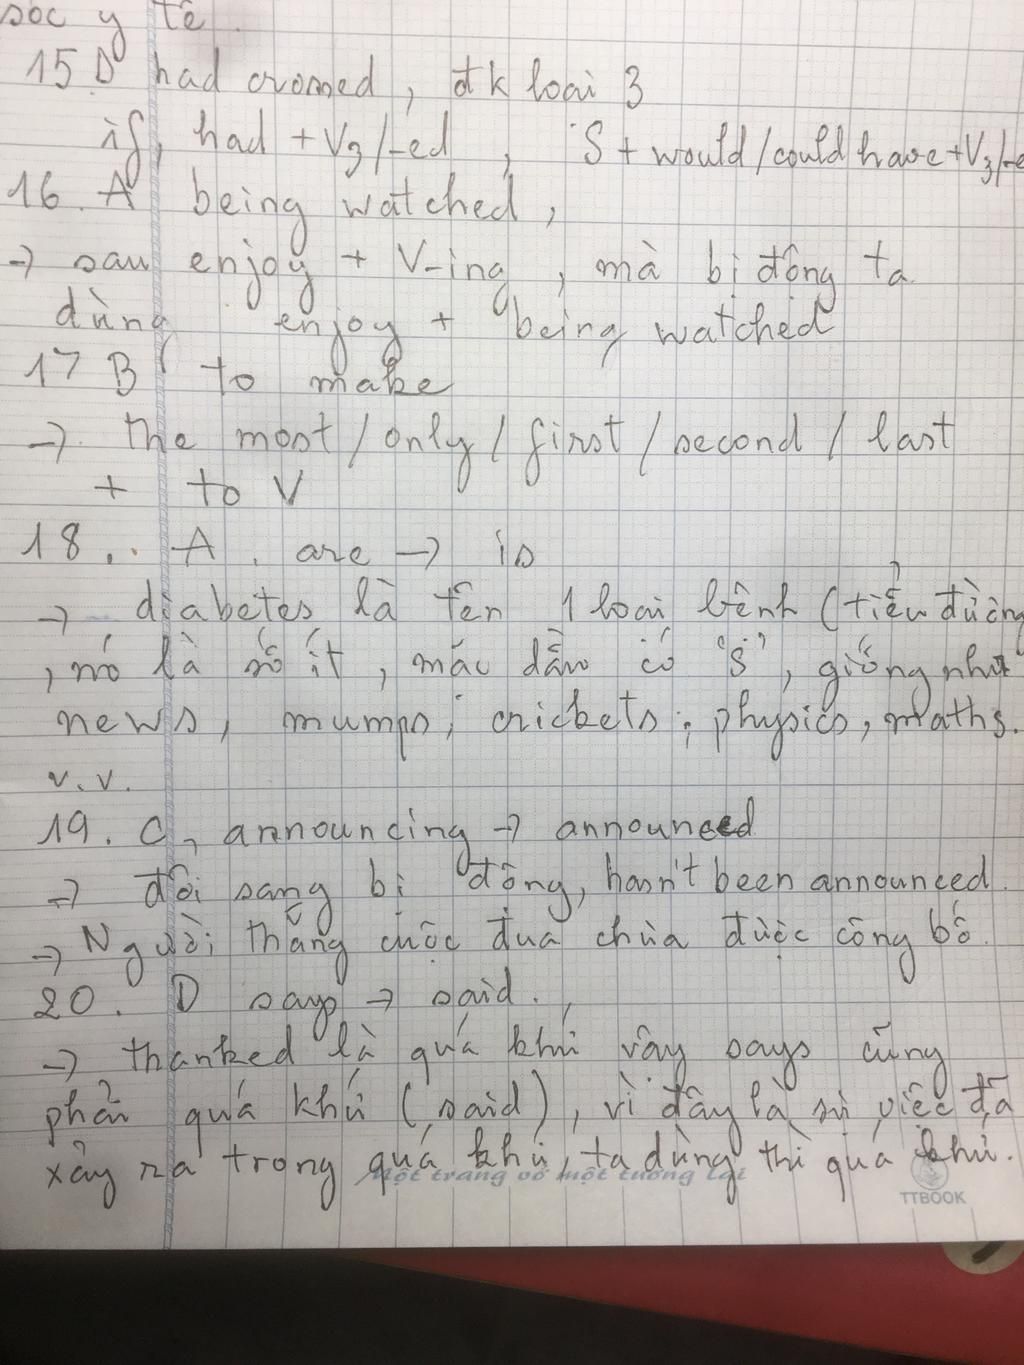 sóc y tế.
15 D had crossed, đk loại 3
if, had + V3/-ed , S + would/could have + V3/-e
16. A being watched,
→ sau enjoy + V-ing, mà bị động ta
dùng enjoy + being watched
17 B to make
→ the most/only/first/second/last
+ to V
18. A. are → is
→ diabetes là tên 1 loại bệnh (tiểu đường
, nó là số ít, mắc dầu có "s", giống như
news, mumps, crickets, physics, maths.
v.v.
19. C, announcing → announced
→ đổi sang bị động, hasn't been announced.
→ Người thắng cuộc đua chưa được công bố.
20. D says → said.
→ thanked là quá khứ vậy says cũng
phải quá khứ (said), vì đây là sự việc đã
xảy ra trong quá khứ, ta dùng thì quá khứ.
Một trang vở một tương lai
TTBOOK